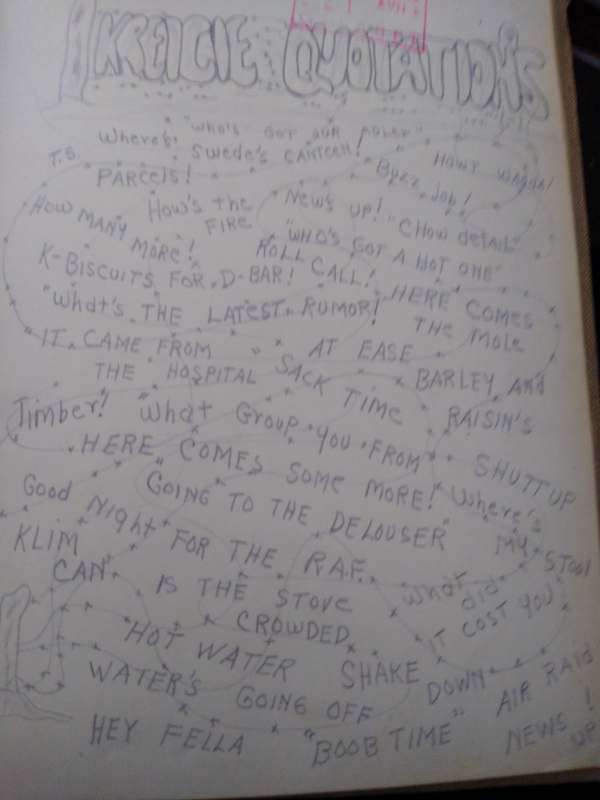 KREIGIE QUOTATION'S
"WHO'S GOT OUR POWER"
T.S.
Where's Swede's CANTEEN!
HOW'S
PARCELS!
Buzz Job!
HOW MANY MORE!
HOW'S THE FIRE
NEWS UP!
"CHOW detail"
K-BISCUITS FOR D-BAR!
ROLL CALL!
"WHO'S GOT A HOT ONE"
"What's THE LATEST RUMOR!
HERE COMES THE MOLE
"IT CAME FROM THE HOSPITAL
" AT EASE
SACK TIME
BARLEY And RAISIN'S
Timber!
"What GROUP YOU FROM
SHUTTUP
HERE COMES SOME MORE!
Where's MY STOOL
"GOING TO THE DELOUSER"
Good Night FOR THE R.A.F.
KLIM CAN
IS THE STOVE CROWDED
What did IT COST YOU
HOT WATER
SHAKE DOWN
WATER'S GOING OFF
AIR RAID!
HEY FELLA
"BOOB TIME"
NEWS UP